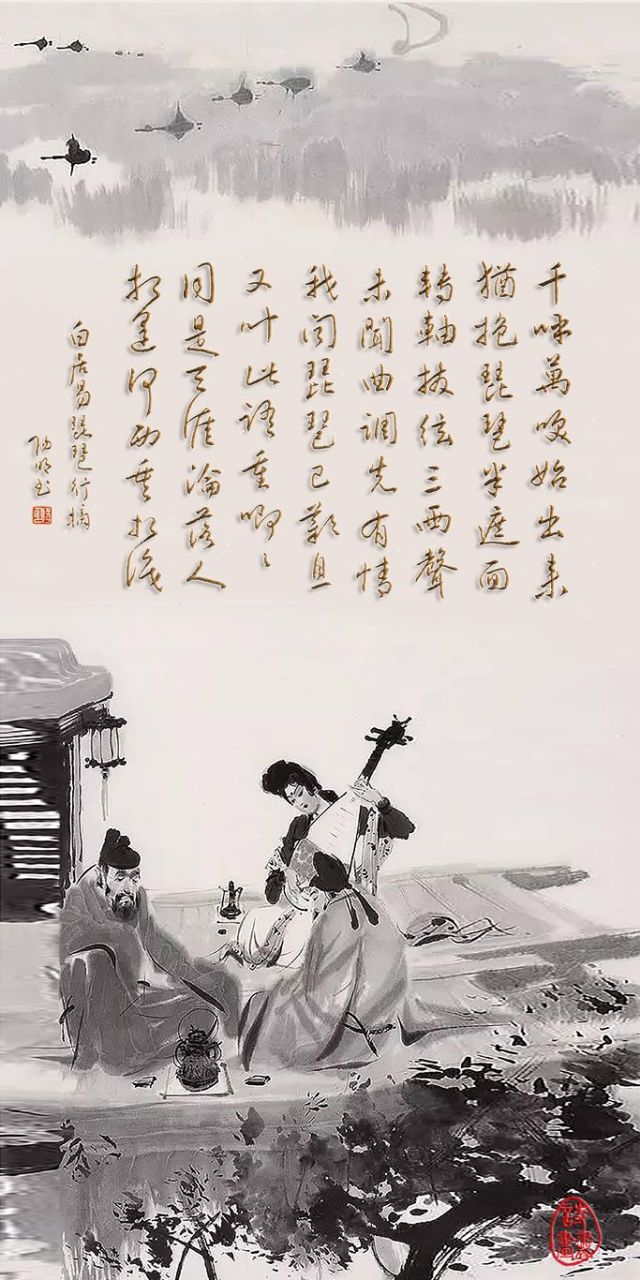 千呼萬喚始出来
猶抱琵琶半遮面
轉軸拔絃三兩聲
未聞曲調先有情
我闻琵琶已歎息
又叶此語重唧〻
同是天涯淪落人
相逢何必曾相識
白居易琵琶行摘